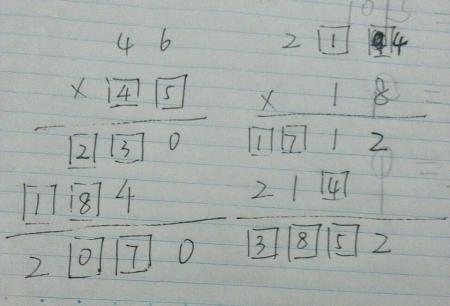 4 6
× 4 5
2 3 0
1 8 4
2 0 7 0
2 1 4
× 1 8
1 7 1 2
2 1 4
3 8 5 2